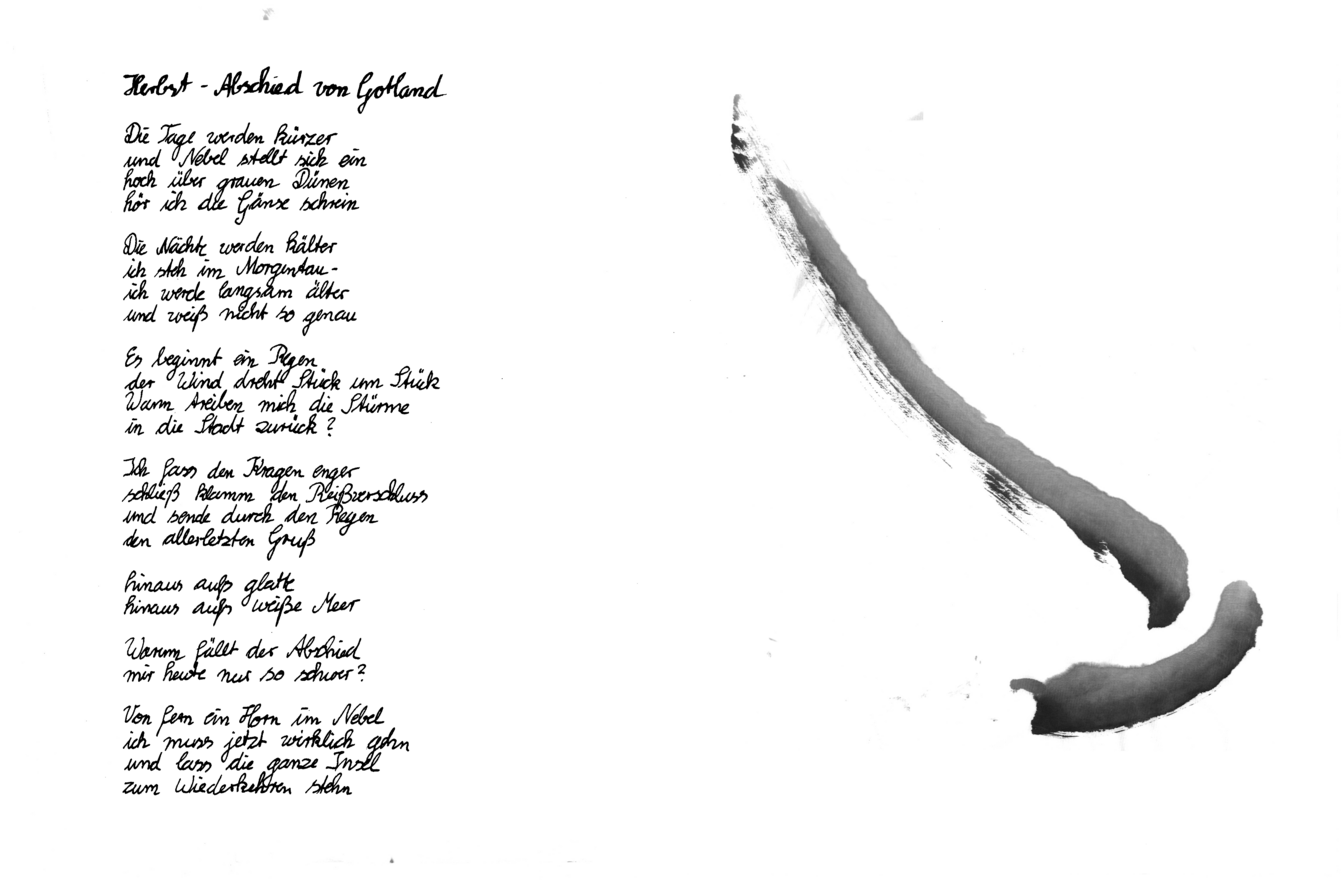 Herbst - Abschied von Gotland
Die Tage werden kürzer
und Nebel stellt sich ein
hoch über grauen Dünen
hör ich die Gänse schrein
Die Nächte werden kälter
ich steh im Morgentau -
ich werde langsam älter
und weiß nicht so genau
Es beginnt ein Regen
der Wind dreht Stück um Stück
Wann treiben mich die Stürme
in die Stadt zurück?
Ich fass den Kragen enger
schließ klamm den Reißverschluss
und sende durch den Regen
den allerletzten Gruß
hinaus aufs glatte
hinaus aufs weiße Meer
Warum fällt der Abschied
mir heute nur so schwer?
Von fern ein Horn im Nebel
ich muss jetzt wirklich gehn
und lass die ganze Insel
zum Wiederkehren stehn